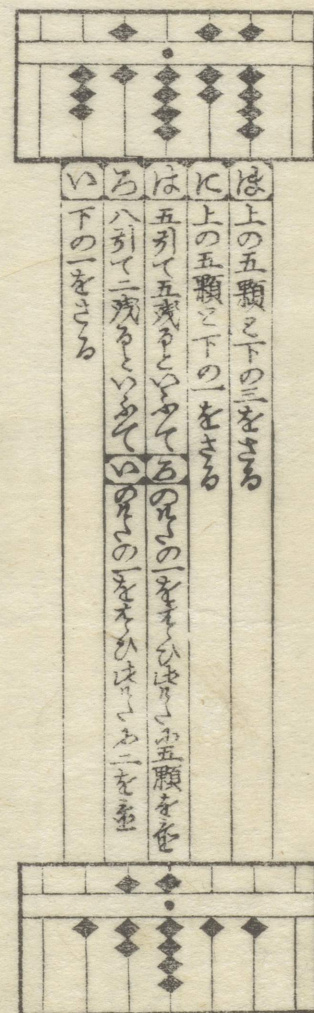 ほ 上の五顆と下の三をさる
に 上の五顆と下の一をさる
は 五引て五残るといふて ろのけたの一をはらひ此けたに五顆を置
ろ 八引て二残るといふて いのけたの一をはらひ此けたに二を置
い 下の一をさる